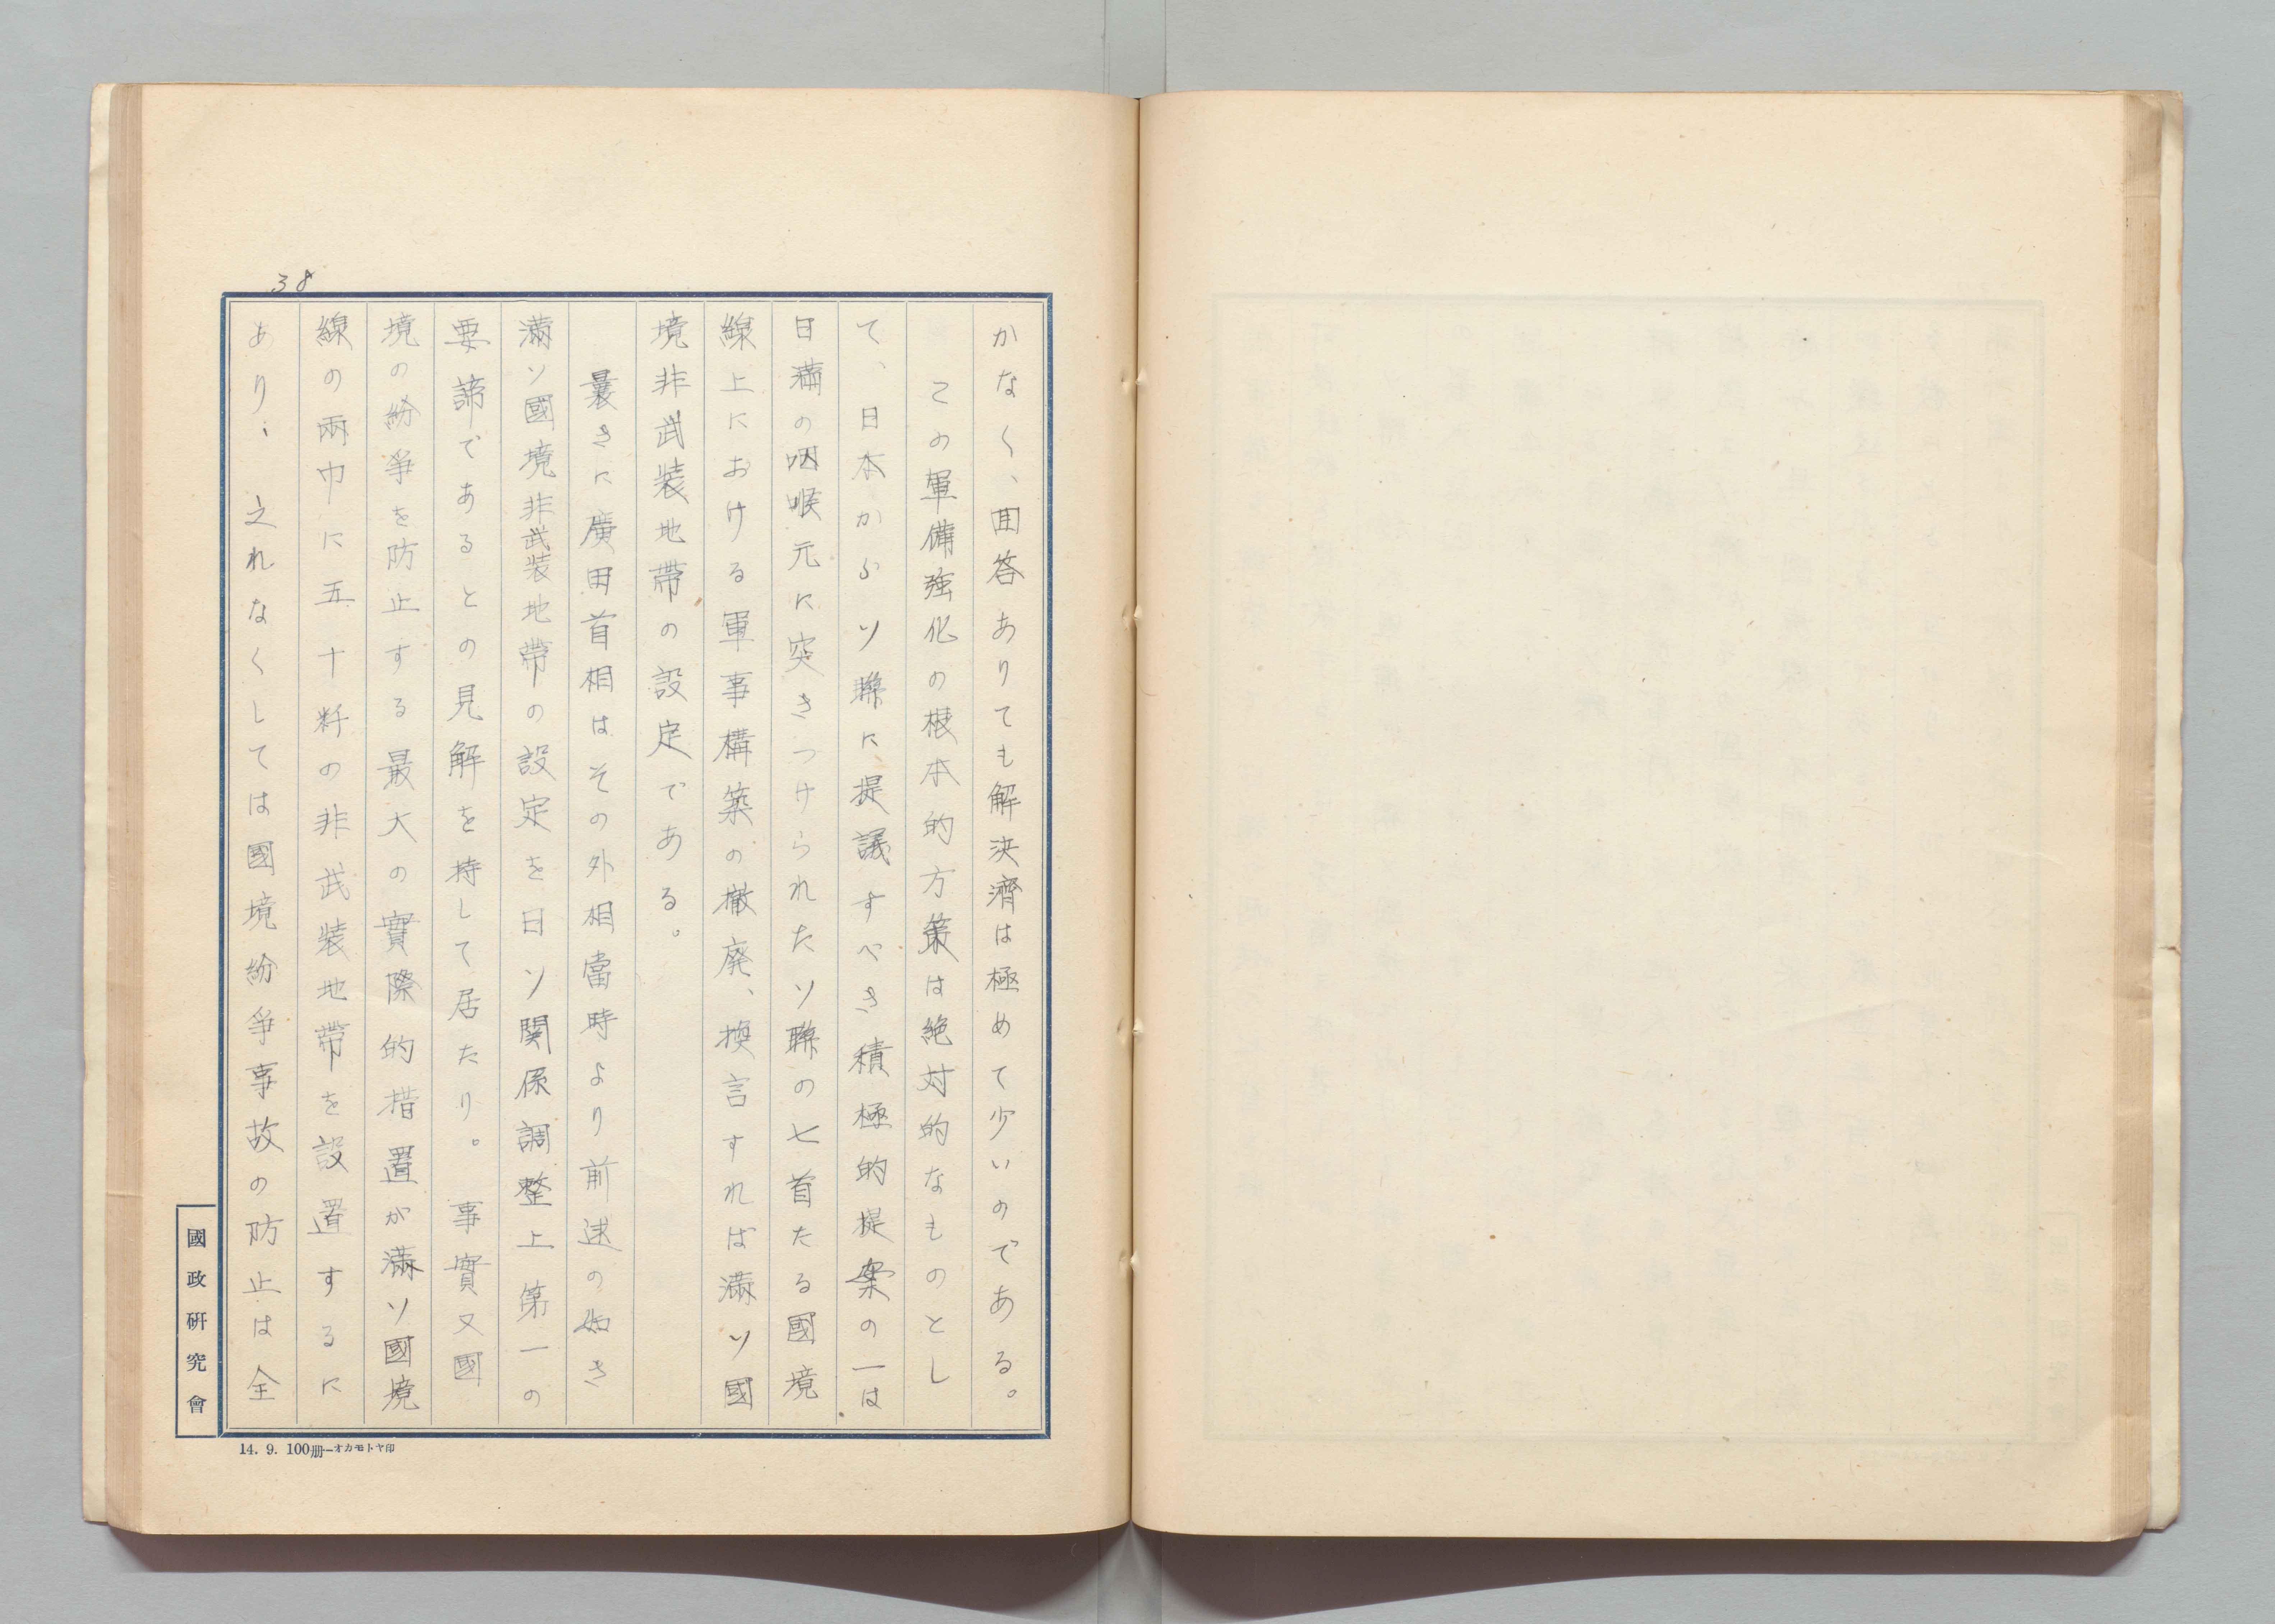 38
かなく、囬答ありても解決濟は極めて少いのである。
この軍備強化の根本的方策は絶対的なものとし
て、日本からソ聯に提議すべき積極的提案の一は
日満の咽喉元に突きつけられたソ聯の匕首たる國境
線上における軍事構築の撤廃、換言すれば満ソ國
境非武装地帶の設定である。
曩きに廣田首相はその外相當時より前述の如き
満ソ國境非武装地帶の設定を日ソ関係調整上第一の
要諦であるとの見解を持して居たり。事實又國
境の紛爭を防止する最大の實際的措置が満ソ國境
線の兩巾に五十粁の非武装地帶を設置するに
あり、之れなくしては國境紛爭事故の防止は全
國政硏究會
14. 9. 100册—オカモトヤ印